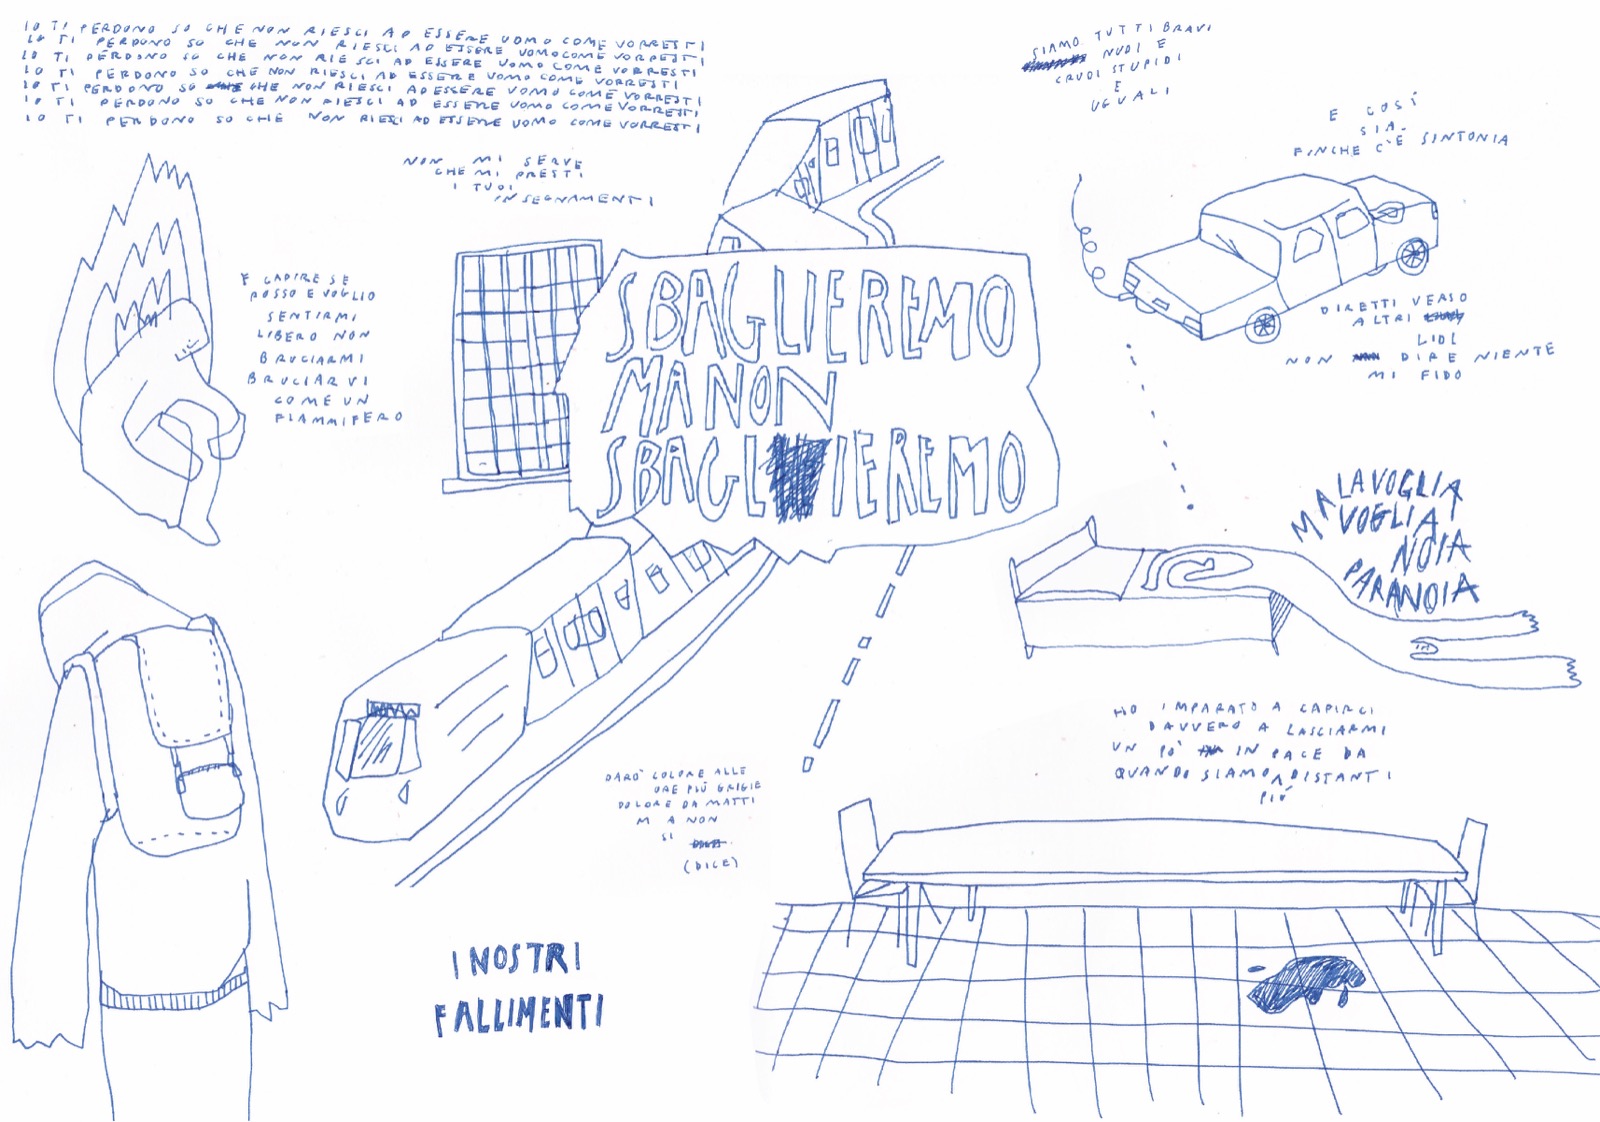 IO TI PERDONO SO CHE NON RIESCI AD ESSERE UOMO COME VORRESTI
IO TI PERDONO SO CHE NON RIESCI AD ESSERE UOMO COME VORRESTI
IO TI PERDONO SO CHE NON RIESCI AD ESSERE UOMO COME VORRESTI
IO TI PERDONO SO CHE NON RIESCI AD ESSERE UOMO COME VORRESTI
IO TI PERDONO SO CHE NON RIESCI AD ESSERE UOMO COME VORRESTI
IO TI PERDONO SO CHE NON RIESCI AD ESSERE UOMO COME VORRESTI
IO TI PERDONO SO CHE NON RIESCI AD ESSERE UOMO COME VORRESTI
NON MI SERVE
CHE MI PRESTI
I TUOI
INSEGNAMENTI
E CAPIRE SE
POSSO E VOGLIO
SENTIRMI
LIBERO NON
BRUCIARMI
BRUCIARVI
COME UN
FIAMMIFERO
SBAGLIEREMO
MA NON
SBAGLIEREMO
SIAMO TUTTI BRAVI
NUDI E
CRUDI STUPIDI
E
UGUALI
E COSÌ
SIA.
FINCHE C'È SINTONIA
DIRETTI VERSO
ALTRI
LIDI
NON DIRE NIENTE
MI FIDO
MA LA VOGLIA
VOGLIA
NOIA
PARANOIA
HO IMPARATO A CAPIRCI
DAVVERO A LASCIARMI
UN PO' IN PACE DA
QUANDO SIAMO PIÙ DISTANTI
DARO' COLORE ALLE
ORE PIÙ GRIGIE
DOLORE DA MATTI
MA NON
SI
(DICE)
I NOSTRI
FALLIMENTI